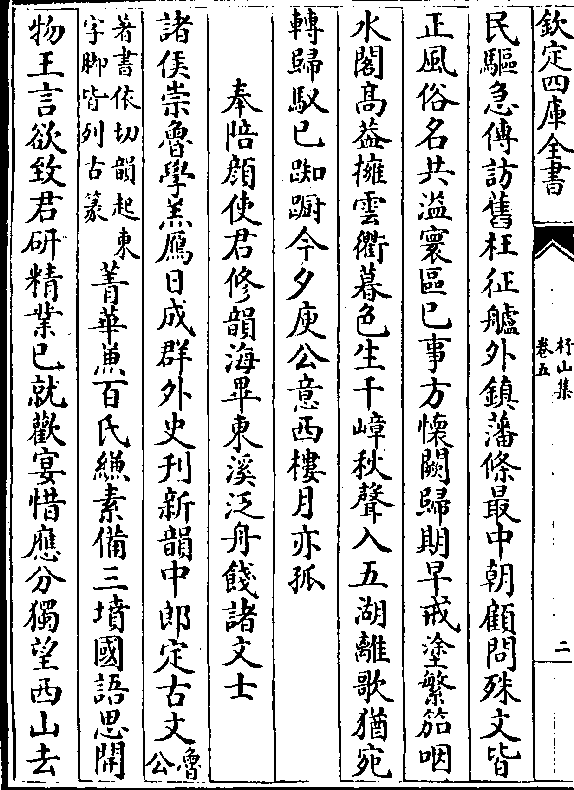 欽定四庫全書
杼山集
卷五
二
民驅急傳訪舊枉征艫外鎮藩條最中朝顧問殊文皆
正風俗名共溢寰區已事方懷闕歸期早戒塗繁笳咽
水閣高蓋擁雲衢暮色生千嶂秋聲入五湖離歌猶宛
轉歸馭已踟躕今夕庾公意西樓月亦孤
奉陪顔使君修韻海畢東溪泛舟餞諸文士
諸侯崇魯學羔鴈日成群外史刊新韻中郎定古文魯公
著書依切韻起東字脚皆列古篆菁華兼百氏縑素備三墳國語思開
物王言欲致君研精業已就歡宴惜應分獨望西山去